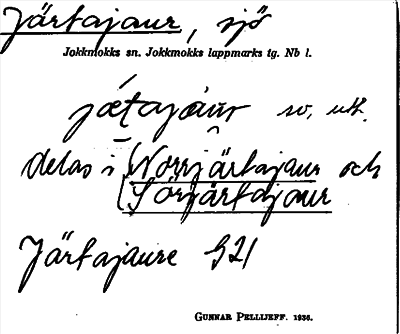 Järtajaur, sjö
Jokkmokks sn. Jokkmokks lappmarks tg. Nb l.
jætajáur sv, uth.
delas i Norrjärtajaur och
Sörjärtajaur
Järtajaure G21
GUNNAR PELLIJEFF. 1936.